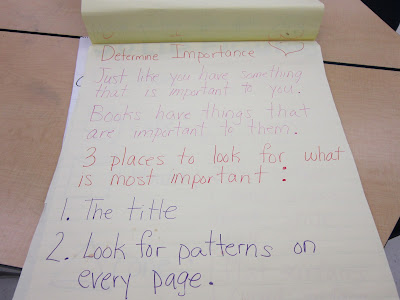 Determine Importance
Just like you have something
that is important to you.
Books have things that
are important to them.
3 places to look for what
is most important:
1. The title
2. Look for patterns on
every page.